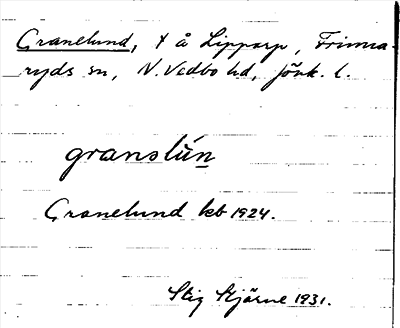 Granelund, t å Lipparp, Frinna-
ryds sn, N. Vedbo hd, Jönk. l.
granslún
Granelund kb 1924.
Stig Stjärne 1931.